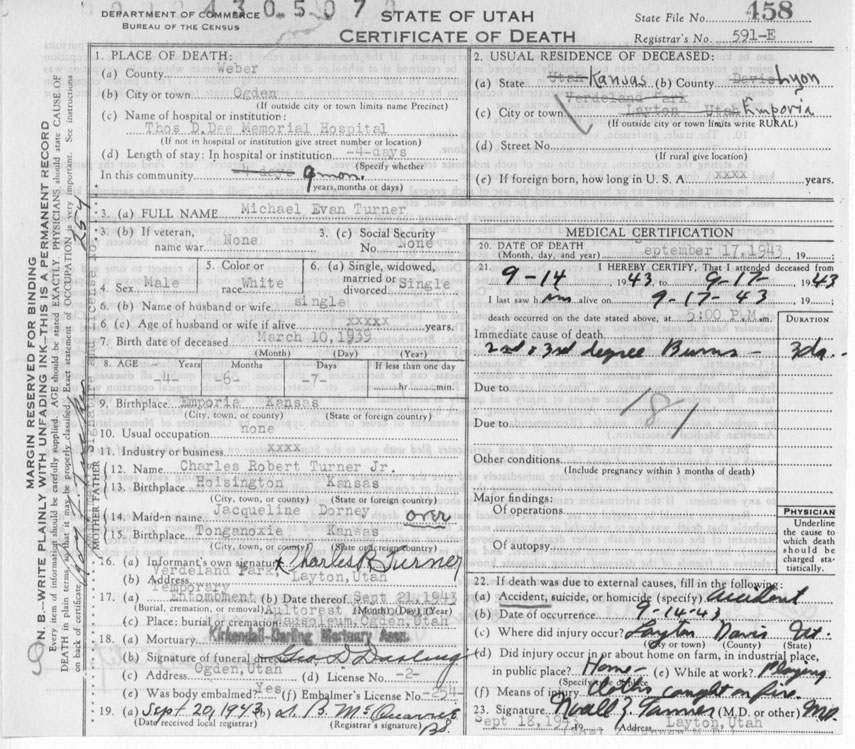 4305073
DEPARTMENT OF COMMERCE
BUREAU OF THE CENSUS
STATE OF UTAH
CERTIFICATE OF DEATH
State File No. 458
Registrar's No. 591-E
MARGIN RESERVED FOR BINDING
N. B.—WRITE PLAINLY WITH UNFADING INK—THIS IS A PERMANENT RECORD
Every item of information should be carefully supplied. AGE should be stated EXACTLY. PHYSICIANS should state CAUSE OF
DEATH in plain terms, so that it may be properly classified. Exact statement of OCCUPATION is very important. See instructions
on back of certificate.
1. PLACE OF DEATH:
(a) County Weber
(b) City or town Ogden
(If outside city or town limits name Precinct)
(c) Name of hospital or institution:
Thos D.Dee Memorial Hospital
(If not in hospital or institution give street number or location)
(d) Length of stay: In hospital or institution -4-days
(Specify whether
In this community -4-days 9 mon.
years, months or days)
2. USUAL RESIDENCE OF DECEASED:
(a) State Utah Kansas (b) County Davis Lyon
Verdeland Park
(c) City or town Layton Utah Emporia
(If outside city or town limits write RURAL)
(d) Street No.
(If rural give location)
(e) If foreign born, how long in U. S. A. xxxx years.
3. (a) FULL NAME Michael Evan Turner
3. (b) If veteran, name war None
3. (c) Social Security No. None
4. Sex Male
5. Color or race White
6. (a) Single, widowed, married or divorced Single
6. (b) Name of husband or wife single
6. (c) Age of husband or wife if alive xxxxx years.
7. Birth date of deceased March 10,1939
(Month) (Day) (Year)
8. AGE Years Months Days If less than one day
-4- -6- -7- hr. min.
9. Birthplace Emporia Kansas
(City, town, or county) (State or foreign country)
10. Usual occupation none
11. Industry or business xxxx
FATHER
12. Name Charles Robert Turner Jr.
13. Birthplace Hoisington Kansas
(City, town, or county) (State or foreign country)
MOTHER
14. Maiden name Jacqueline Dorney over
15. Birthplace Tonganoxie Kansas
(City, town, or county) (State or foreign country)
16. (a) Informant's own signature Charles R Turner
(b) Address Verdeland Park, Layton,Utah
Temporary
17. (a) Entombment (b) Date thereof Sept 21,1943
(Burial, cremation, or removal) (Month) (Day) (Year)
(c) Place: burial or cremation Aultorest Mausoleum,Ogden,Utah
18. (a) Mortuary Kirkendall-Darling Mortuary Assn.
(b) Signature of funeral director Geo. D Darling
(c) Address Ogden,Utah (d) License No. -2-
(e) Was body embalmed? Yes (f) Embalmer's License No. -254-
19. (a) Sept 20, 1943 (b)
(Date received local registrar) (Registrar's signature)
MEDICAL CERTIFICATION
20. DATE OF DEATH
(Month, day, and year) eptember 17,1943 19
21. I HEREBY CERTIFY, That I attended deceased from
9-14 1943 to 9-17- 1943
I last saw him alive on 9-17-43
death occurred on the date stated above, at 5:00 P.M. m.
DURATION
Immediate cause of death
2nd & 3rd degree Burns - 3da.
Due to
181
Due to
Other conditions
(Include pregnancy within 3 months of death)
Major findings:
Of operations
Of autopsy
PHYSICIAN
Underline
the cause to
which death
should be
charged sta-
tistically.
22. If death was due to external causes, fill in the following:
(a) Accident, suicide, or homicide (specify) Accident
(b) Date of occurrence 9-14-43
(c) Where did injury occur? Layton Davis Ut.
(City or town) (County) (State)
(d) Did injury occur in or about home on farm, in industrial place,
in public place? Home- (e) While at work? Playing
(Specify type of place)
(f) Means of injury Cloths caught on fire.
23. Signature Noall Z. Tanner (M.D. or other) MD
Sept 18,1943 19 Address Layton,Utah